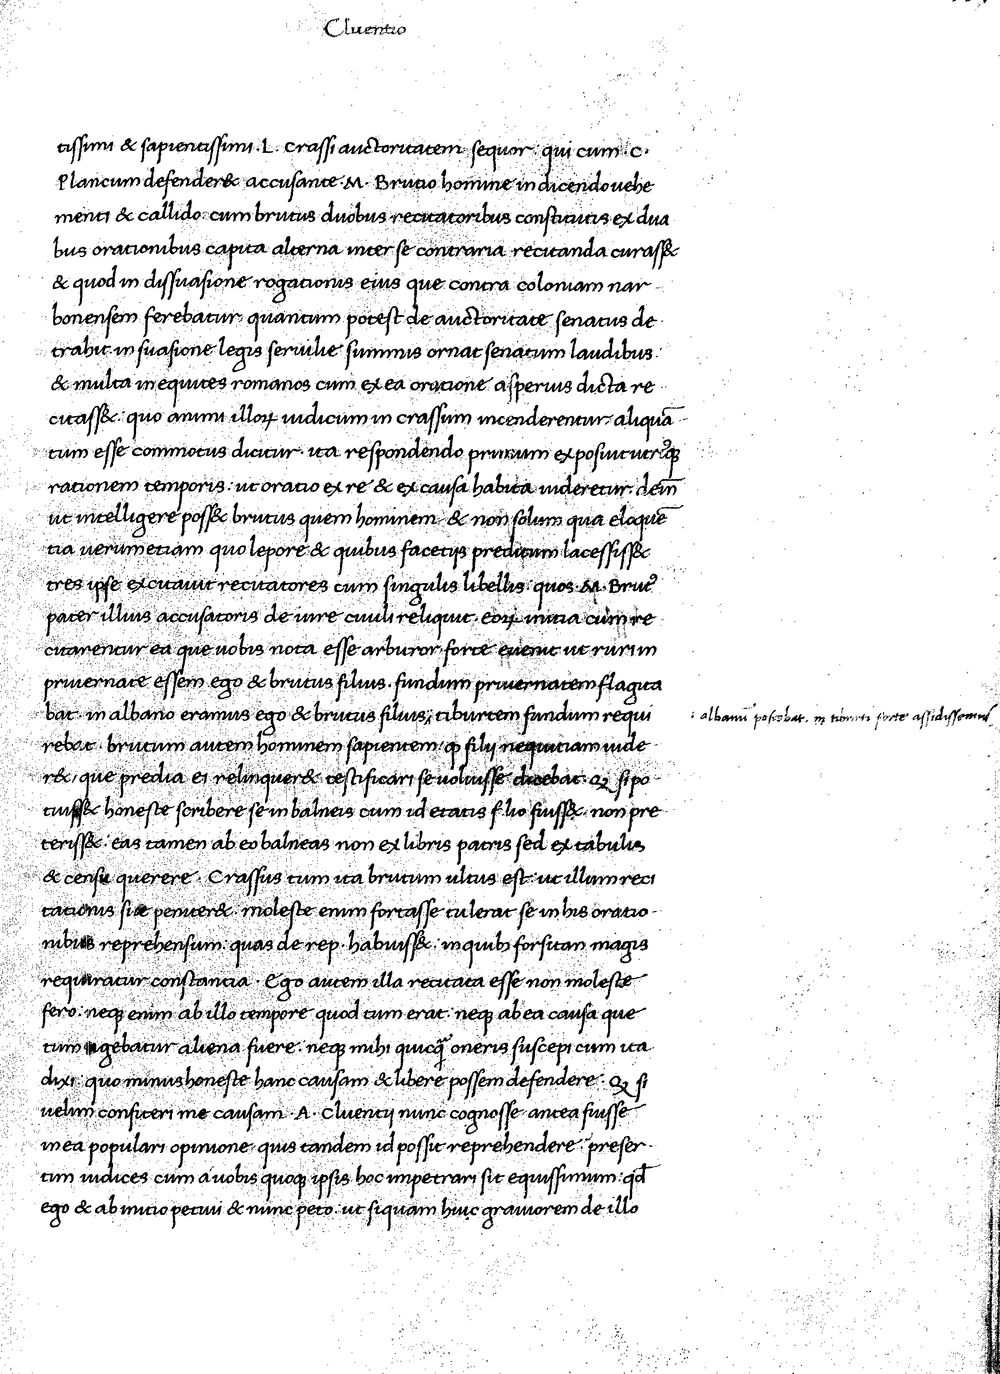 Cluentio
tissimi & sapientissimi. L. crassi auctoritatem sequor. qui cum. C.
Plancum defender& accusante. M. Brutio homine in dicendo uehe
menti & callido. cum brutus duobus recitatoribus constitutis ex dua
bus orationibus capita alterna inter se contraria recitanda curass&
& quod in dissuasione rogationis eius que contra coloniam nar
bonensem ferebatur quantum potest de auctoritate senatus de
trahit. in suasione legis seruilie summis ornat senatum laudibus.
& multa in equites romanos cum ex ea oratione asperius dicta re
citass&. quo animi illoꝝ iudicum in crassum incenderentur. aliquā
tum esse commotus dicitur. ita respondendo primum exposuit utriꝰqꝫ
rationem temporis. ut oratio ex re & ex causa habita uideretur. dein̄
ut intelligere poss& brutus quem hominem. & non solum qua eloquē
tia uerum etiam quo lepore & quibus facetijs preditum lacessiss&
tres ipse excitauit recitatores cum singulis libellis. quos. M. Brutꝰ
pater illius accusatoris de iure ciuili reliquit. eoꝝ initia cum re
citarentur ea que uobis nota esse arbitror. forte euenit ut ruri in
priuernate essem ego & brutus filius. fundum priuernatem flagita
bat. in albano eramus ego & brutus filius, tiburtem fundum requi
: albanū poscebat. in tiburti forte assidissemus
rebat. brutum autem hominem sapientem. ꝙ filij nequitiam uide
r&, que predia ei relinquer& testificari se uoluisse dicebat. Qꝫ si po
tuiss& honeste scribere se in balneis cum id etatis filio fuiss&. non pre
teriss&. eas tamen ab eo balneas non ex libris patris sed ex tabulis
& censu querere. Crassus tum ita brutum ultus est. ut illum reci
tationis sue peniter&. moleste enim fortasse tulerat se in his oratio
nibus reprehensum. quas de rep. habuiss&. in quibꝫ forsitan magis
requiratur constantia. Ego autem illa recitata esse non moleste
fero. neqꝫ enim ab illo tempore quod tum erat. neqꝫ ab ea causa que
tum agebatur aliena fuere. neqꝫ mihi quicqͣ̄ oneris suscepi cum ita
dixi. quo minus honeste hanc causam & libere possem defendere. Qꝫ si
uelim confiteri me causam. A. Cluentij nunc cognosse. antea fuisse
in ea populari opinione. quis tandem id possit reprehendere. preser
tim iudices cum a uobis quoqꝫ ipsis hoc impetrari sit equissimum. qd̄
ego & ab initio petiui & nunc peto. ut siquam huic grauiorem de illo